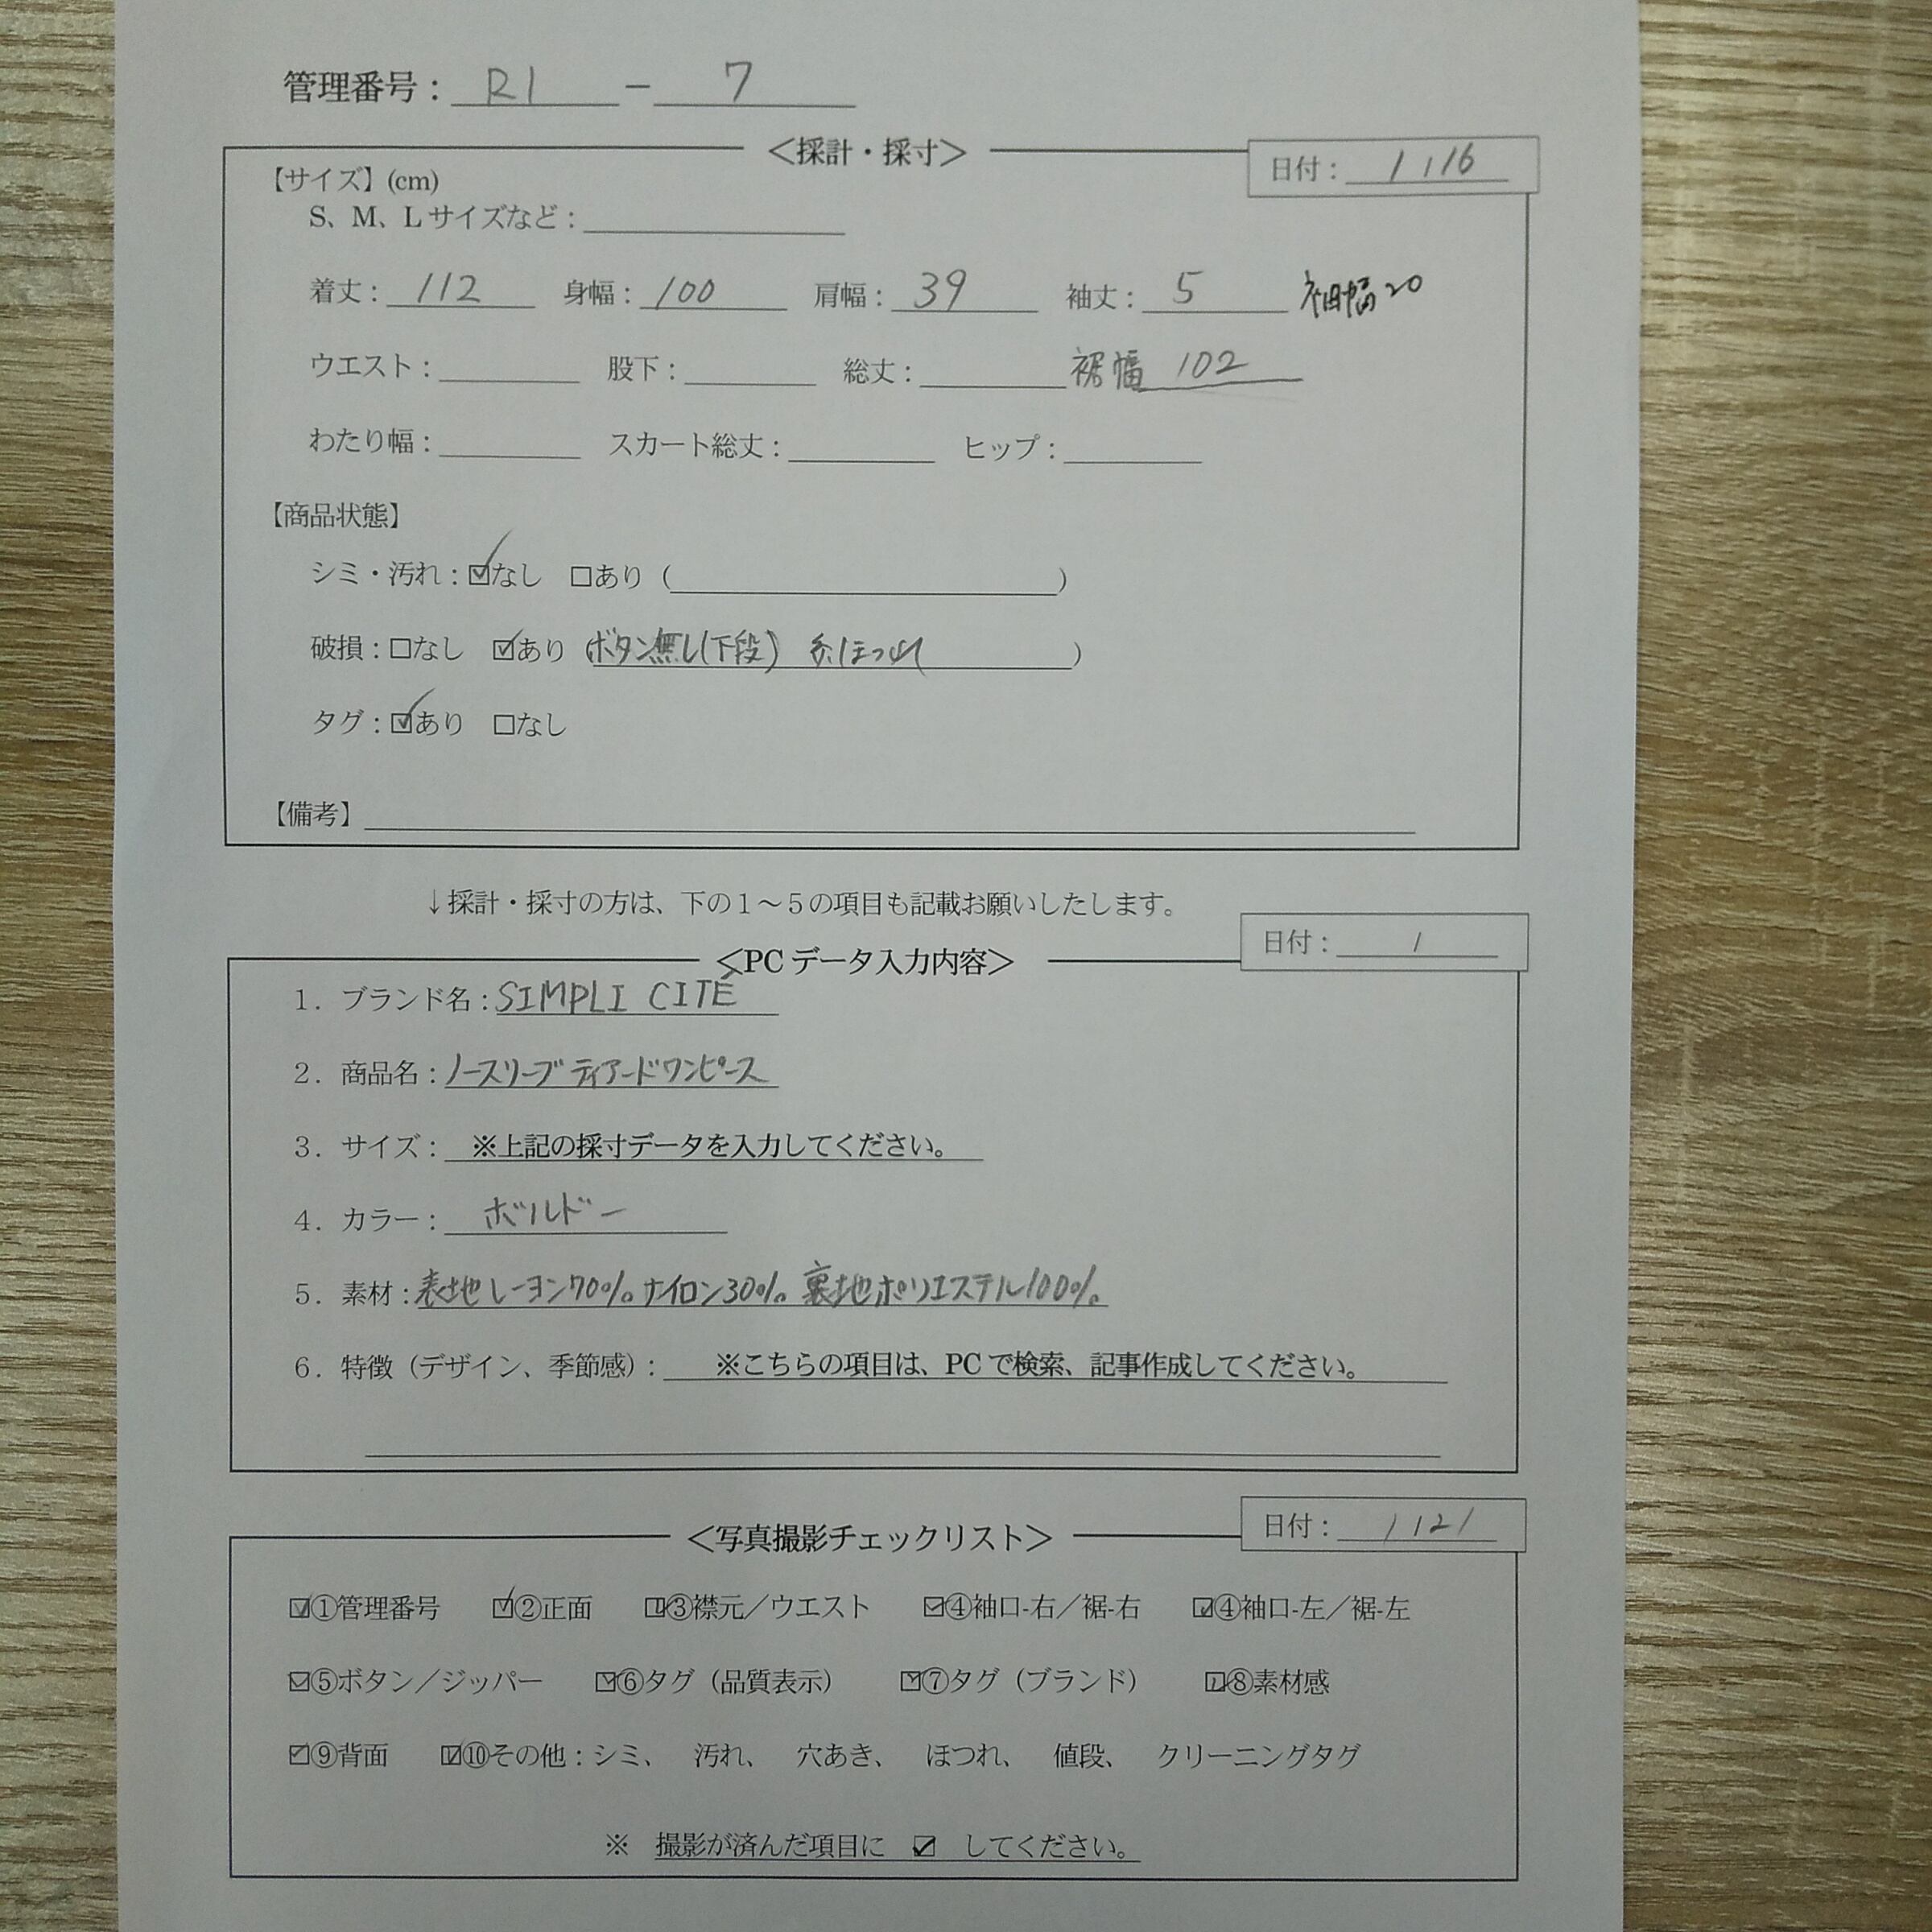 管理番号：R1 － 7
＜採計・採寸＞
日付：1 / 16
【サイズ】(cm)
S、M、Lサイズなど：
着丈：112 身幅：100 肩幅：39 袖丈：5 袖幅20
ウエスト： 股下： 総丈： 裾幅 102
わたり幅： スカート総丈： ヒップ：
【商品状態】
シミ・汚れ：☑なし □あり（ ）
破損：□なし ☑あり（ボタン無し(下段) 糸ほつれ ）
タグ：☑あり □なし
【備考】
↓採計・採寸の方は、下の１～５の項目も記載お願いしたします。
＜PCデータ入力内容＞
日付： /
１．ブランド名：SIMPLI CITÉ
２．商品名：ノースリーブティアードワンピース
３．サイズ： ※上記の採寸データを入力してください。
４．カラー： ボルドー
５．素材：表地レーヨン70% ナイロン30% 裏地ポリエステル100%
６．特徴（デザイン、季節感）： ※こちらの項目は、PCで検索、記事作成してください。
＜写真撮影チェックリスト＞
日付：1 / 21
☑①管理番号 ☑②正面 ☑③襟元／ウエスト ☑④袖口-右／裾-右 ☑④袖口-左／裾-左
☑⑤ボタン／ジッパー ☑⑥タグ（品質表示） ☑⑦タグ（ブランド） ☑⑧素材感
☑⑨背面 ☑⑩その他：シミ、 汚れ、 穴あき、 ほつれ、 値段、 クリーニングタグ
※ 撮影が済んだ項目に ☑ してください。